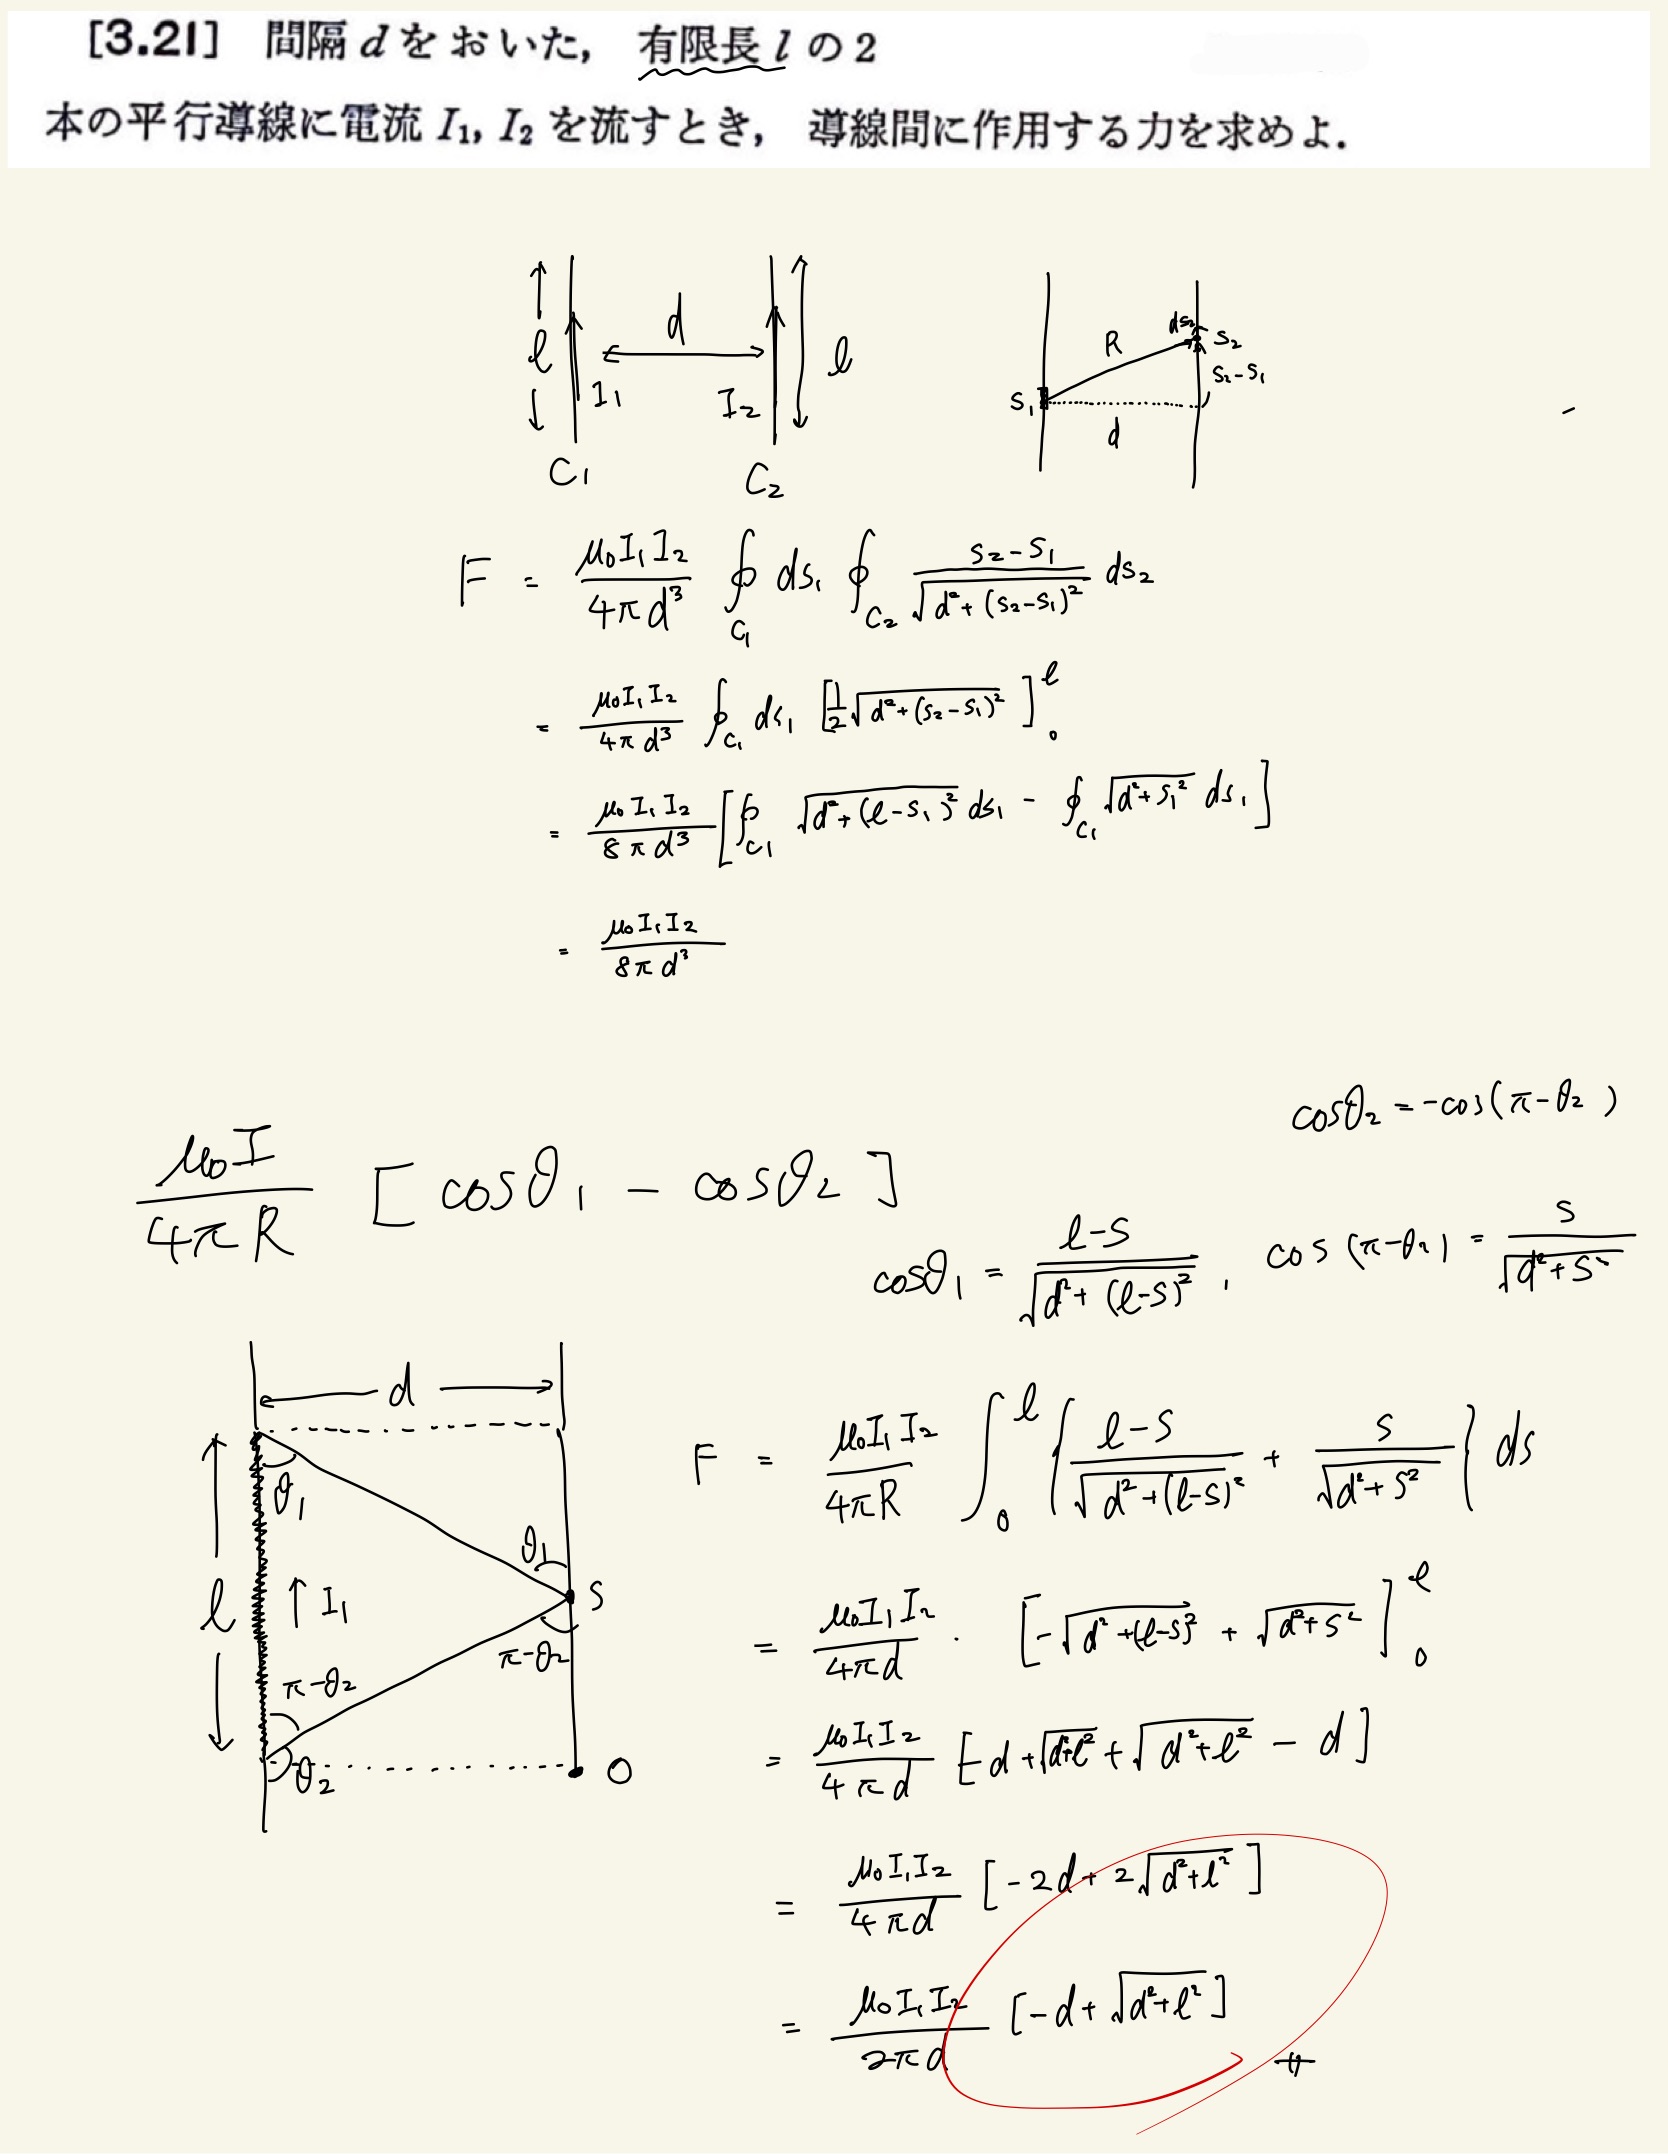 [3.21] 間隔 d をおいた, 有限長 l の2
本の平行導線に電流 I₁, I₂ を流すとき, 導線間に作用する力を求めよ.
l I₁ d I₂ l
C₁ C₂
S₁ R d ds₂ S₂ S₂-S₁
F = μ₀I₁I₂/4πd³ ∮_C₁ ds₁ ∮_C₂ (S₂-S₁)/√(d²+(S₂-S₁)²) ds₂
= μ₀I₁I₂/4πd³ ∮_C₁ ds₁ [1/2 √(d²+(S₂-S₁)²)]₀^l
= μ₀I₁I₂/8πd³ [∮_C₁ √(d²+(l-S₁)²) ds₁ - ∮_C₁ √(d²+S₁²) ds₁]
= μ₀I₁I₂/8πd³
cosθ₂ = -cos(π-θ₂)
μ₀I/4πR [cosθ₁ - cosθ₂]
cosθ₁ = (l-S)/√(d²+(l-S)²) , cos(π-θ₂) = S/√(d²+S²)
d
l I₁ θ₁ θ₁ S
π-θ₂ π-θ₂
θ₂ O
F = μ₀I₁I₂/4πR ∫₀^l {(l-S)/√(d²+(l-S)²) + S/√(d²+S²)} ds
= μ₀I₁I₂/4πd · [-√(d²+(l-S)²) + √(d²+S²)]₀^l
= μ₀I₁I₂/4πd [-d+√(d²+l²)+√(d²+l²) - d]
= μ₀I₁I₂/4πd [-2d+2√(d²+l²)]
= μ₀I₁I₂/2πd [-d+√(d²+l²)]